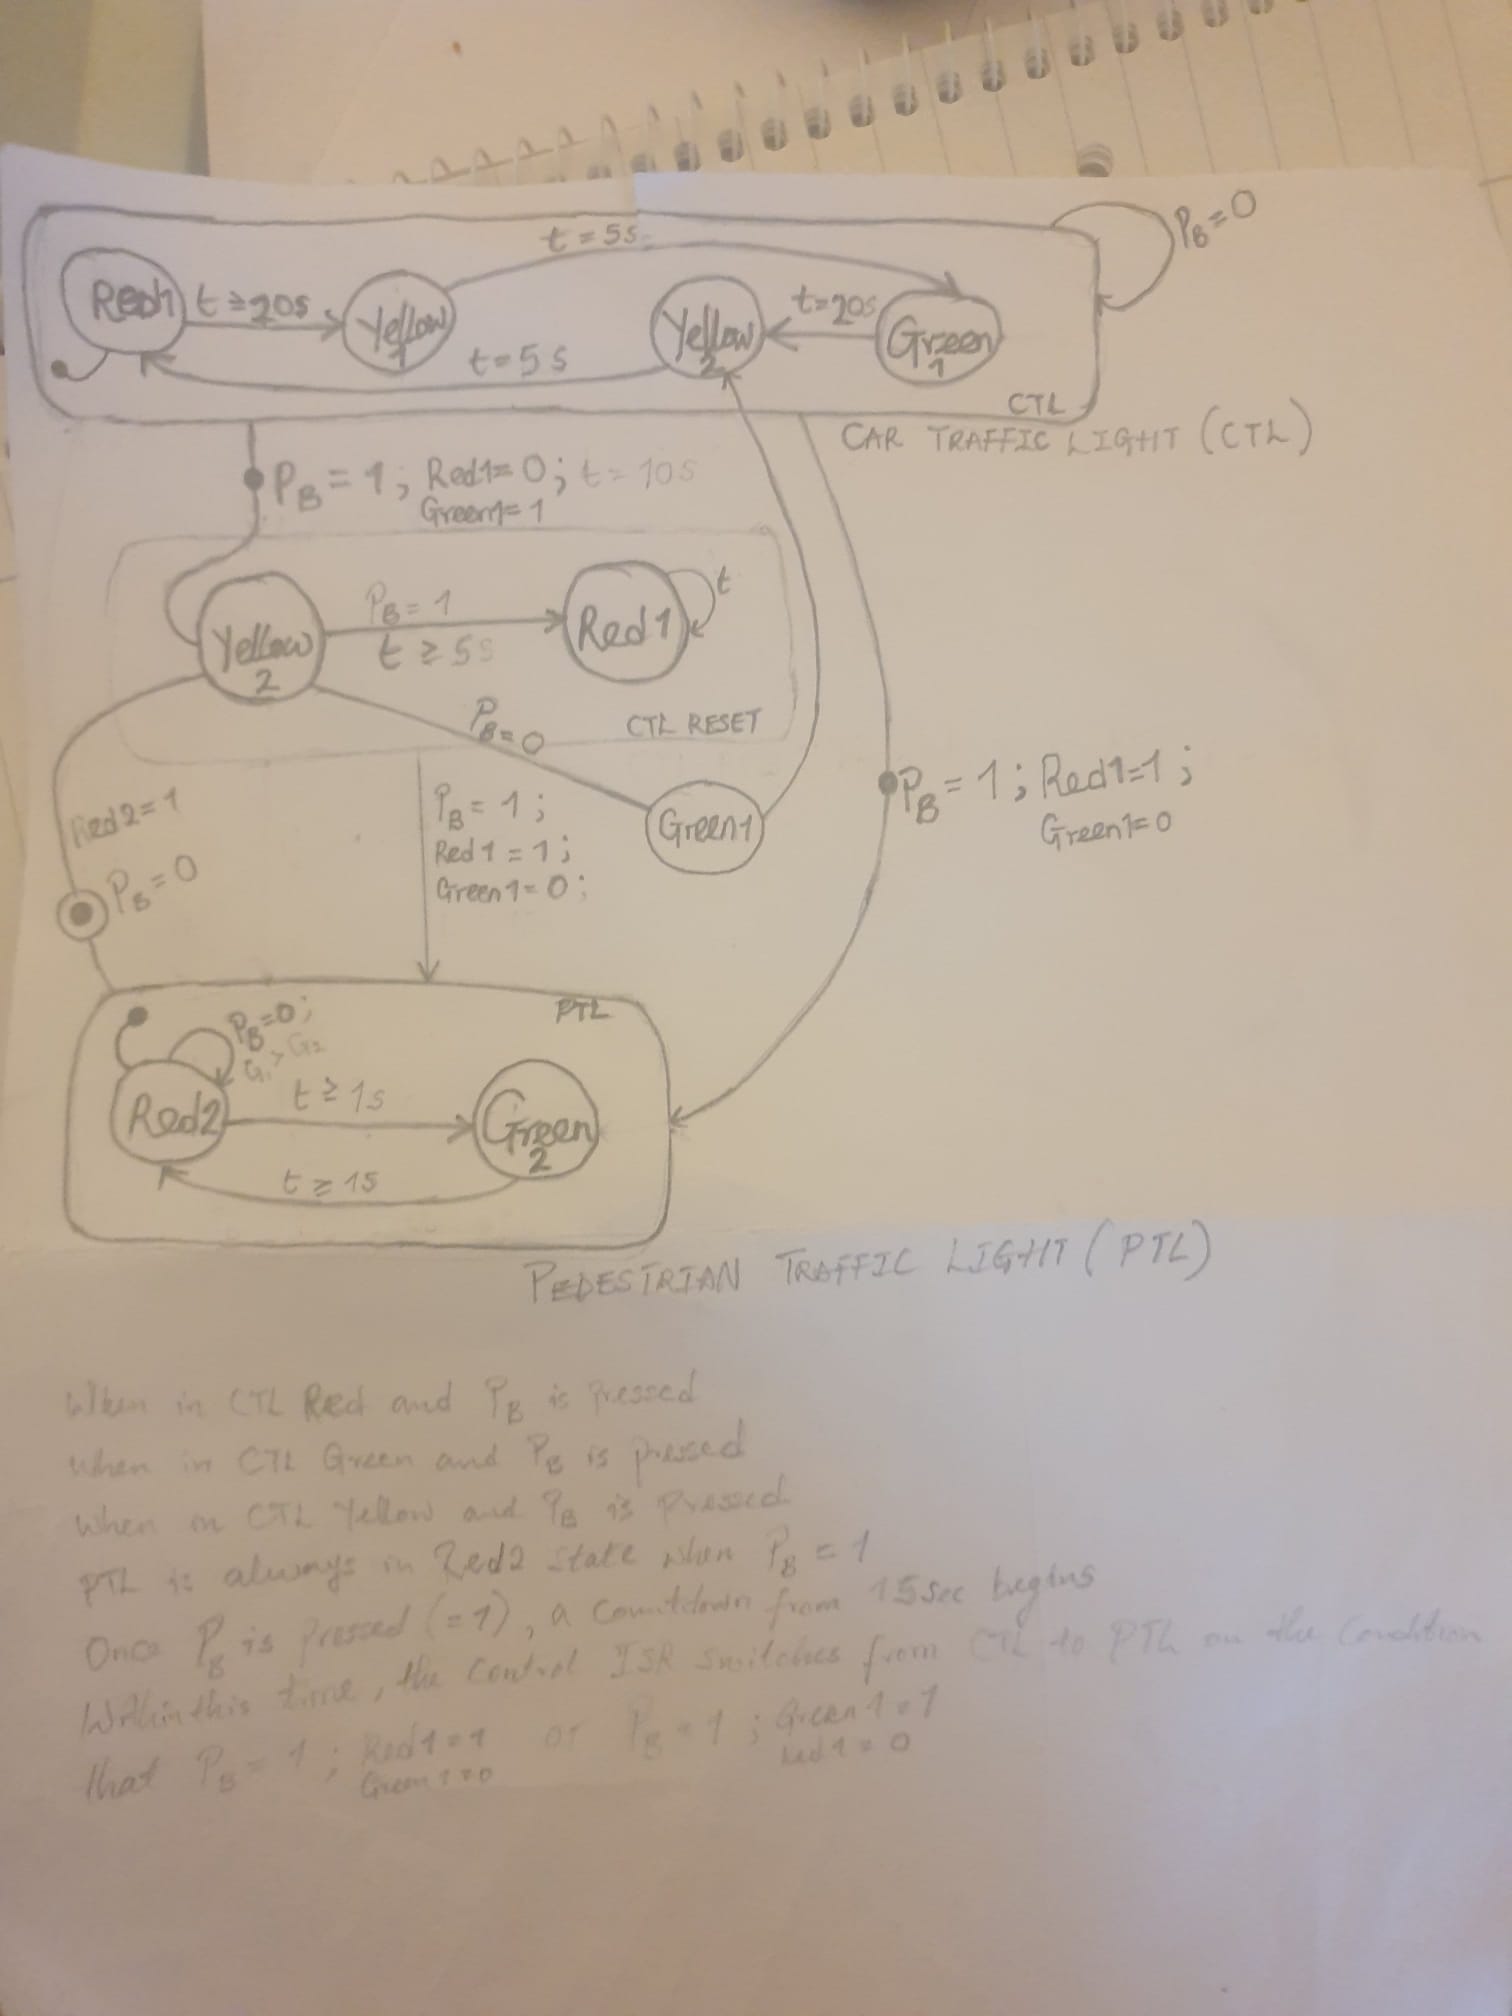 t = 5s
PB = 0
Red1
t ≥ 20s
Yellow
1
Yellow
2
t=20s
Green
1
t = 5s
CTL
CAR TRAFFIC LIGHT (CTL)
PB = 1; Red1= 0; t = 10s
Green1= 1
Yellow
2
PB = 1
t ≥ 5s
Red1
t
PB=0
CTL RESET
Red2=1
PB=0
PB = 1;
Red1 = 1;
Green1=0;
Green1
PB = 1; Red1=1;
Green1=0
PTL
PB=0;
G1 > G2
Red2
t ≥ 1s
Green
2
t ≥ 1s
PEDESTRIAN TRAFFIC LIGHT (PTL)
When in CTL Red and PB is Pressed
When in CTL Green and PB is pressed
When in CTL Yellow and PB is Pressed
PTL is always in Red2 state when PB = 1
Once PB is Pressed (=1), a Countdown from 15sec begins
Within this time, the Control ISR switches from CTL to PTL on the Condition
that PB = 1; Red1=1 or PB=1; Green1=1
Green1=0 Red1=0